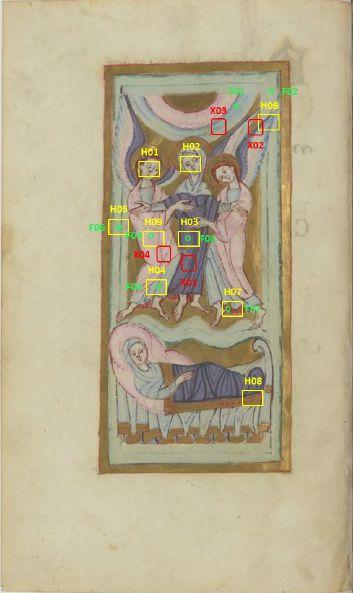 F01
F02
X03
H06
X02
H01
H02
H05
F06
H09
F04
F03
H03
X04
X01
H04
F05
H07
F07
H08